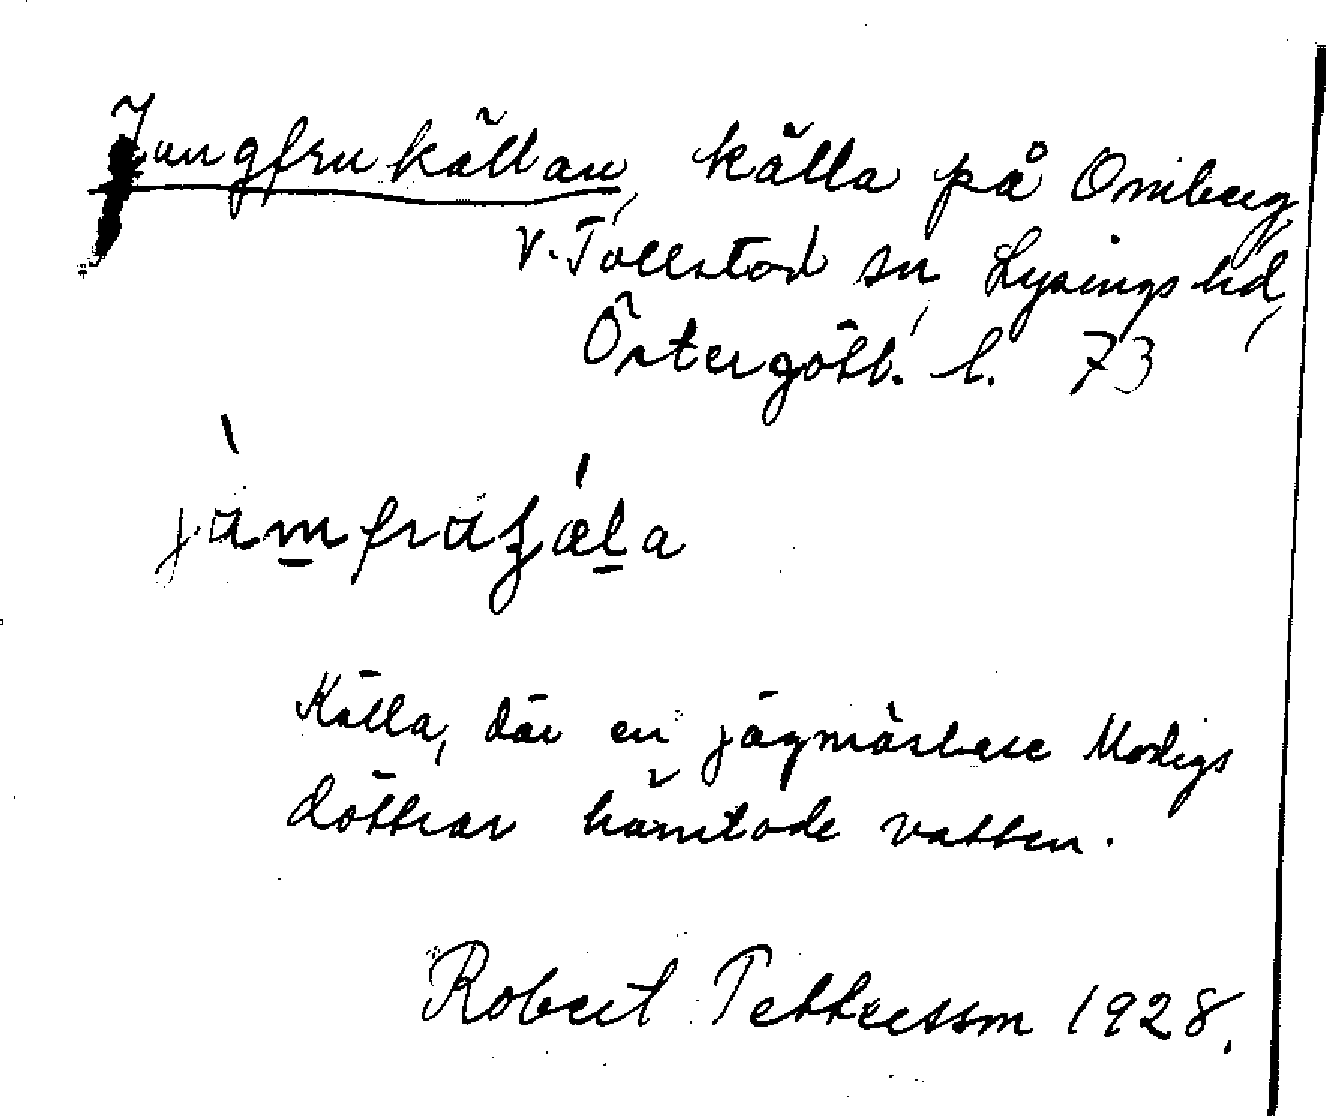 Jungfrukällan, källa på Omberg,
V. Tollstad sn, Lysings hd,
Östergötl. l. 73
jùmfruʒǽla
Källa, där en jägmästare Modigs
döttrar hämtade vatten.
Robert Pettersson 1928.